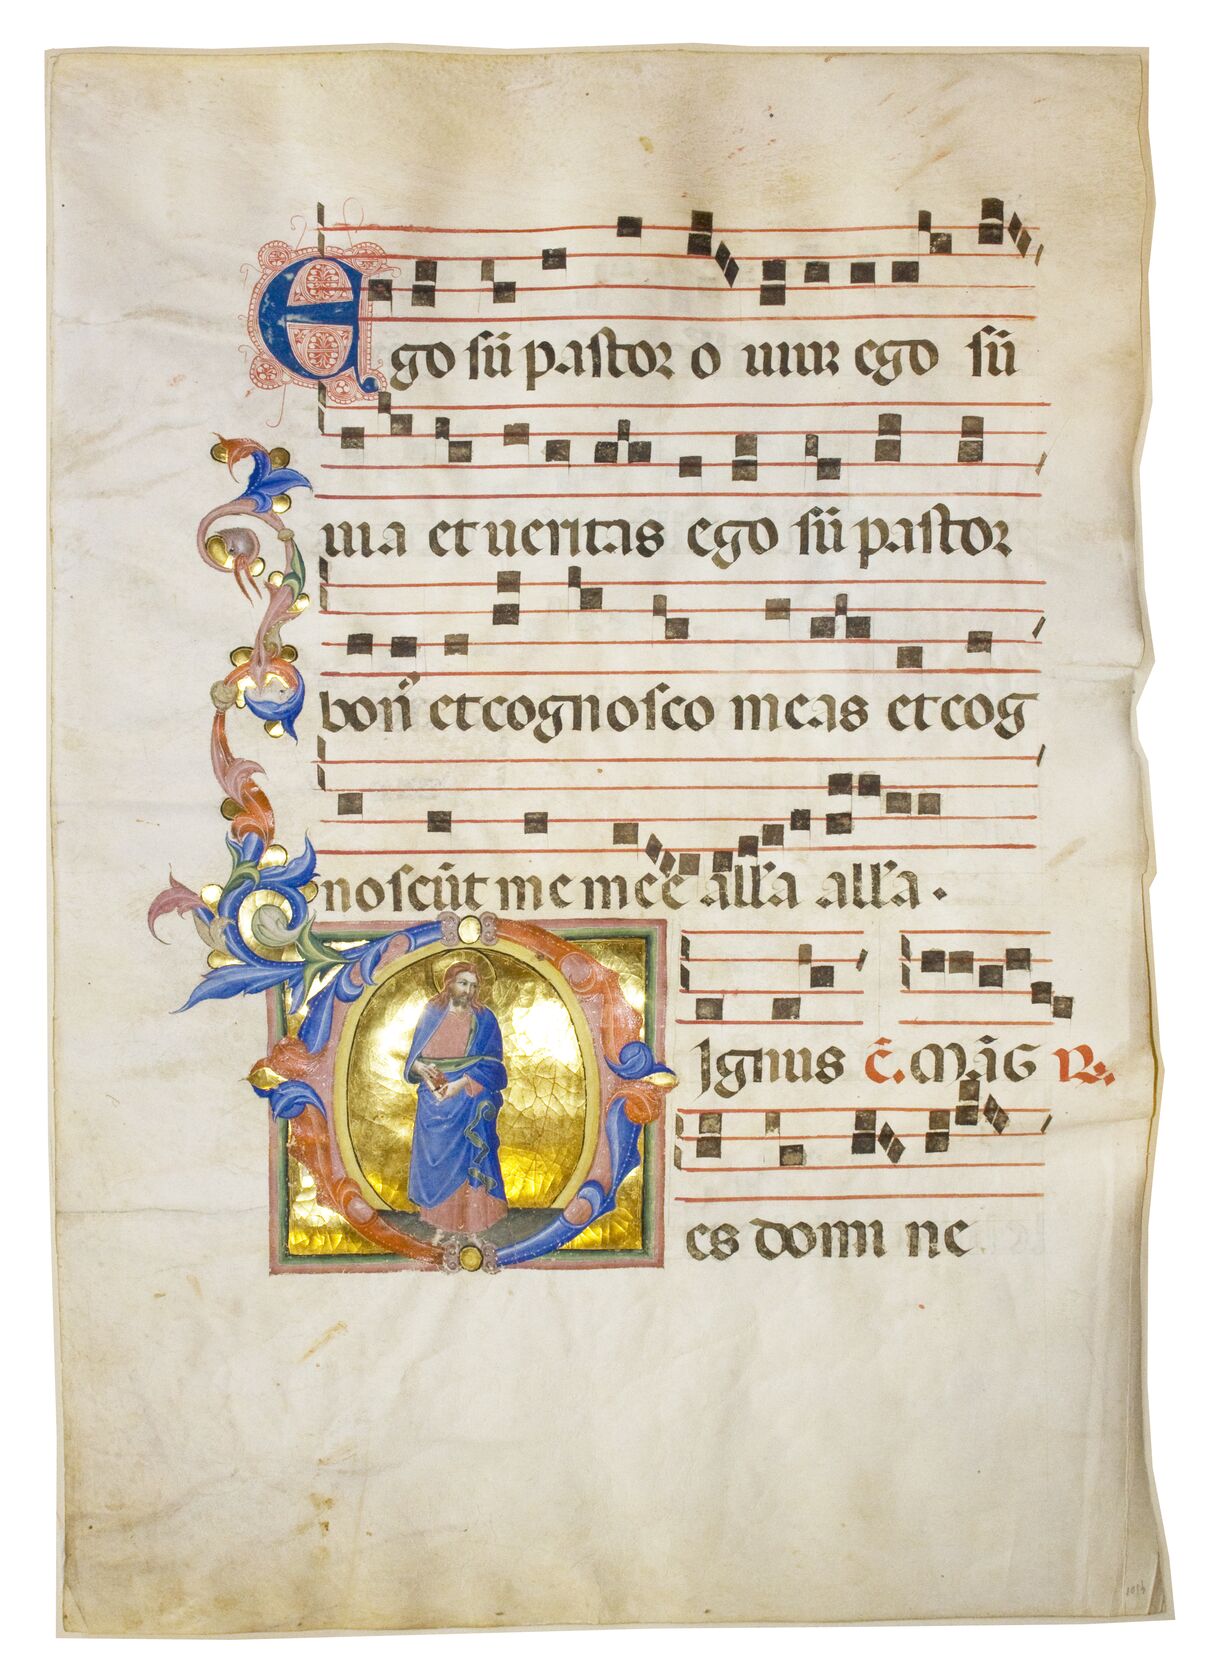 Ego sū pastor o uiur ego sū
uia et ueritas ego sū pastor
bon᷒ et cognosco meas et cog
noscūt me mee all'a all'a.
Dignus c̄. Māg ℞.
es domine